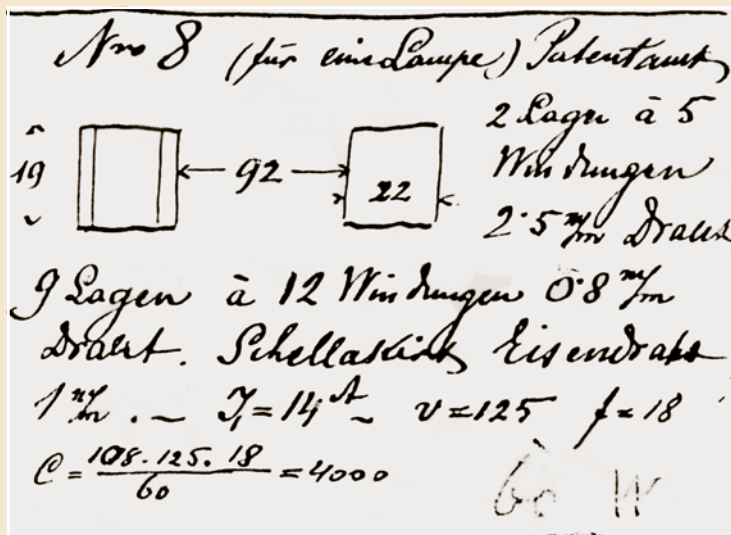 Nro 8 (für eine Lampe) Patentamt
2 Lagen à 5
Windungen
2·5 m/m Draht
19
92
22
9 Lagen à 12 Windungen 0·8 m/m
Draht. Schellackirt Eisendraht
1 m/m . — J₁=14 A — v=125 f=18
C = 108.125.18 / 60 = 4000
60 W